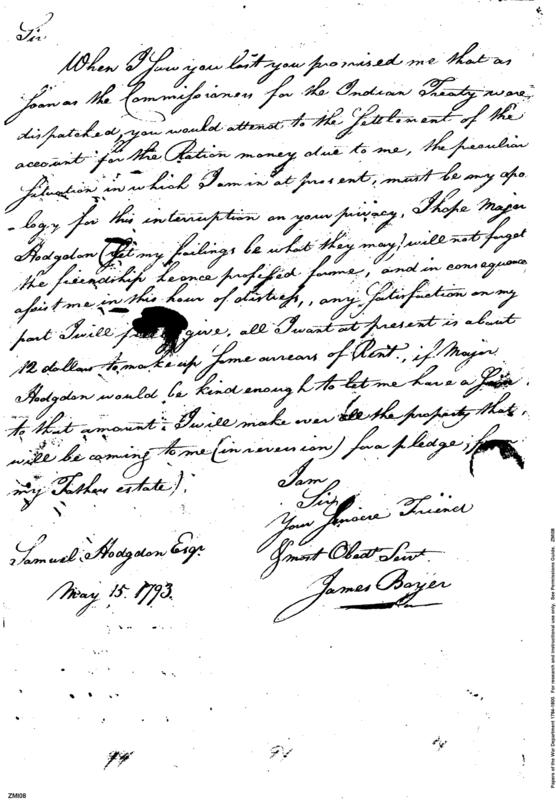 Sir
When I saw you last you promised me that as
soon as the Commissioners for the Indian Treaty were
dispatched, you would attend to the Settlement of the
account for the Ration money due to me, the peculiar
situation in which I am in at present, must be my apo
-logy for this interruption on your privacy, I hope Major
Hodgdon (let my failings be what they may) will not forget
the friendship he once professed for me, and in consequence
assist me in this hour of distress, any Satisfaction on my
part I will give, all I want at present is about
12 dollars to make up some arrears of Rent, if Major
Hodgdon would be kind enough to let me have a
to that amount I will make over all the property that
will be coming to me (in reversion) for a pledge,
my Fathers estate).
I am
Sir
Your Sincere Friend
& most Obedt. Servt.
James Boyer
Samuel Hodgdon Esqr.
May 15 1793.
94
ZMI08
Papers of the War Department 1784-1800. For research and instructional use only. See Permissions Guide. ZMI08